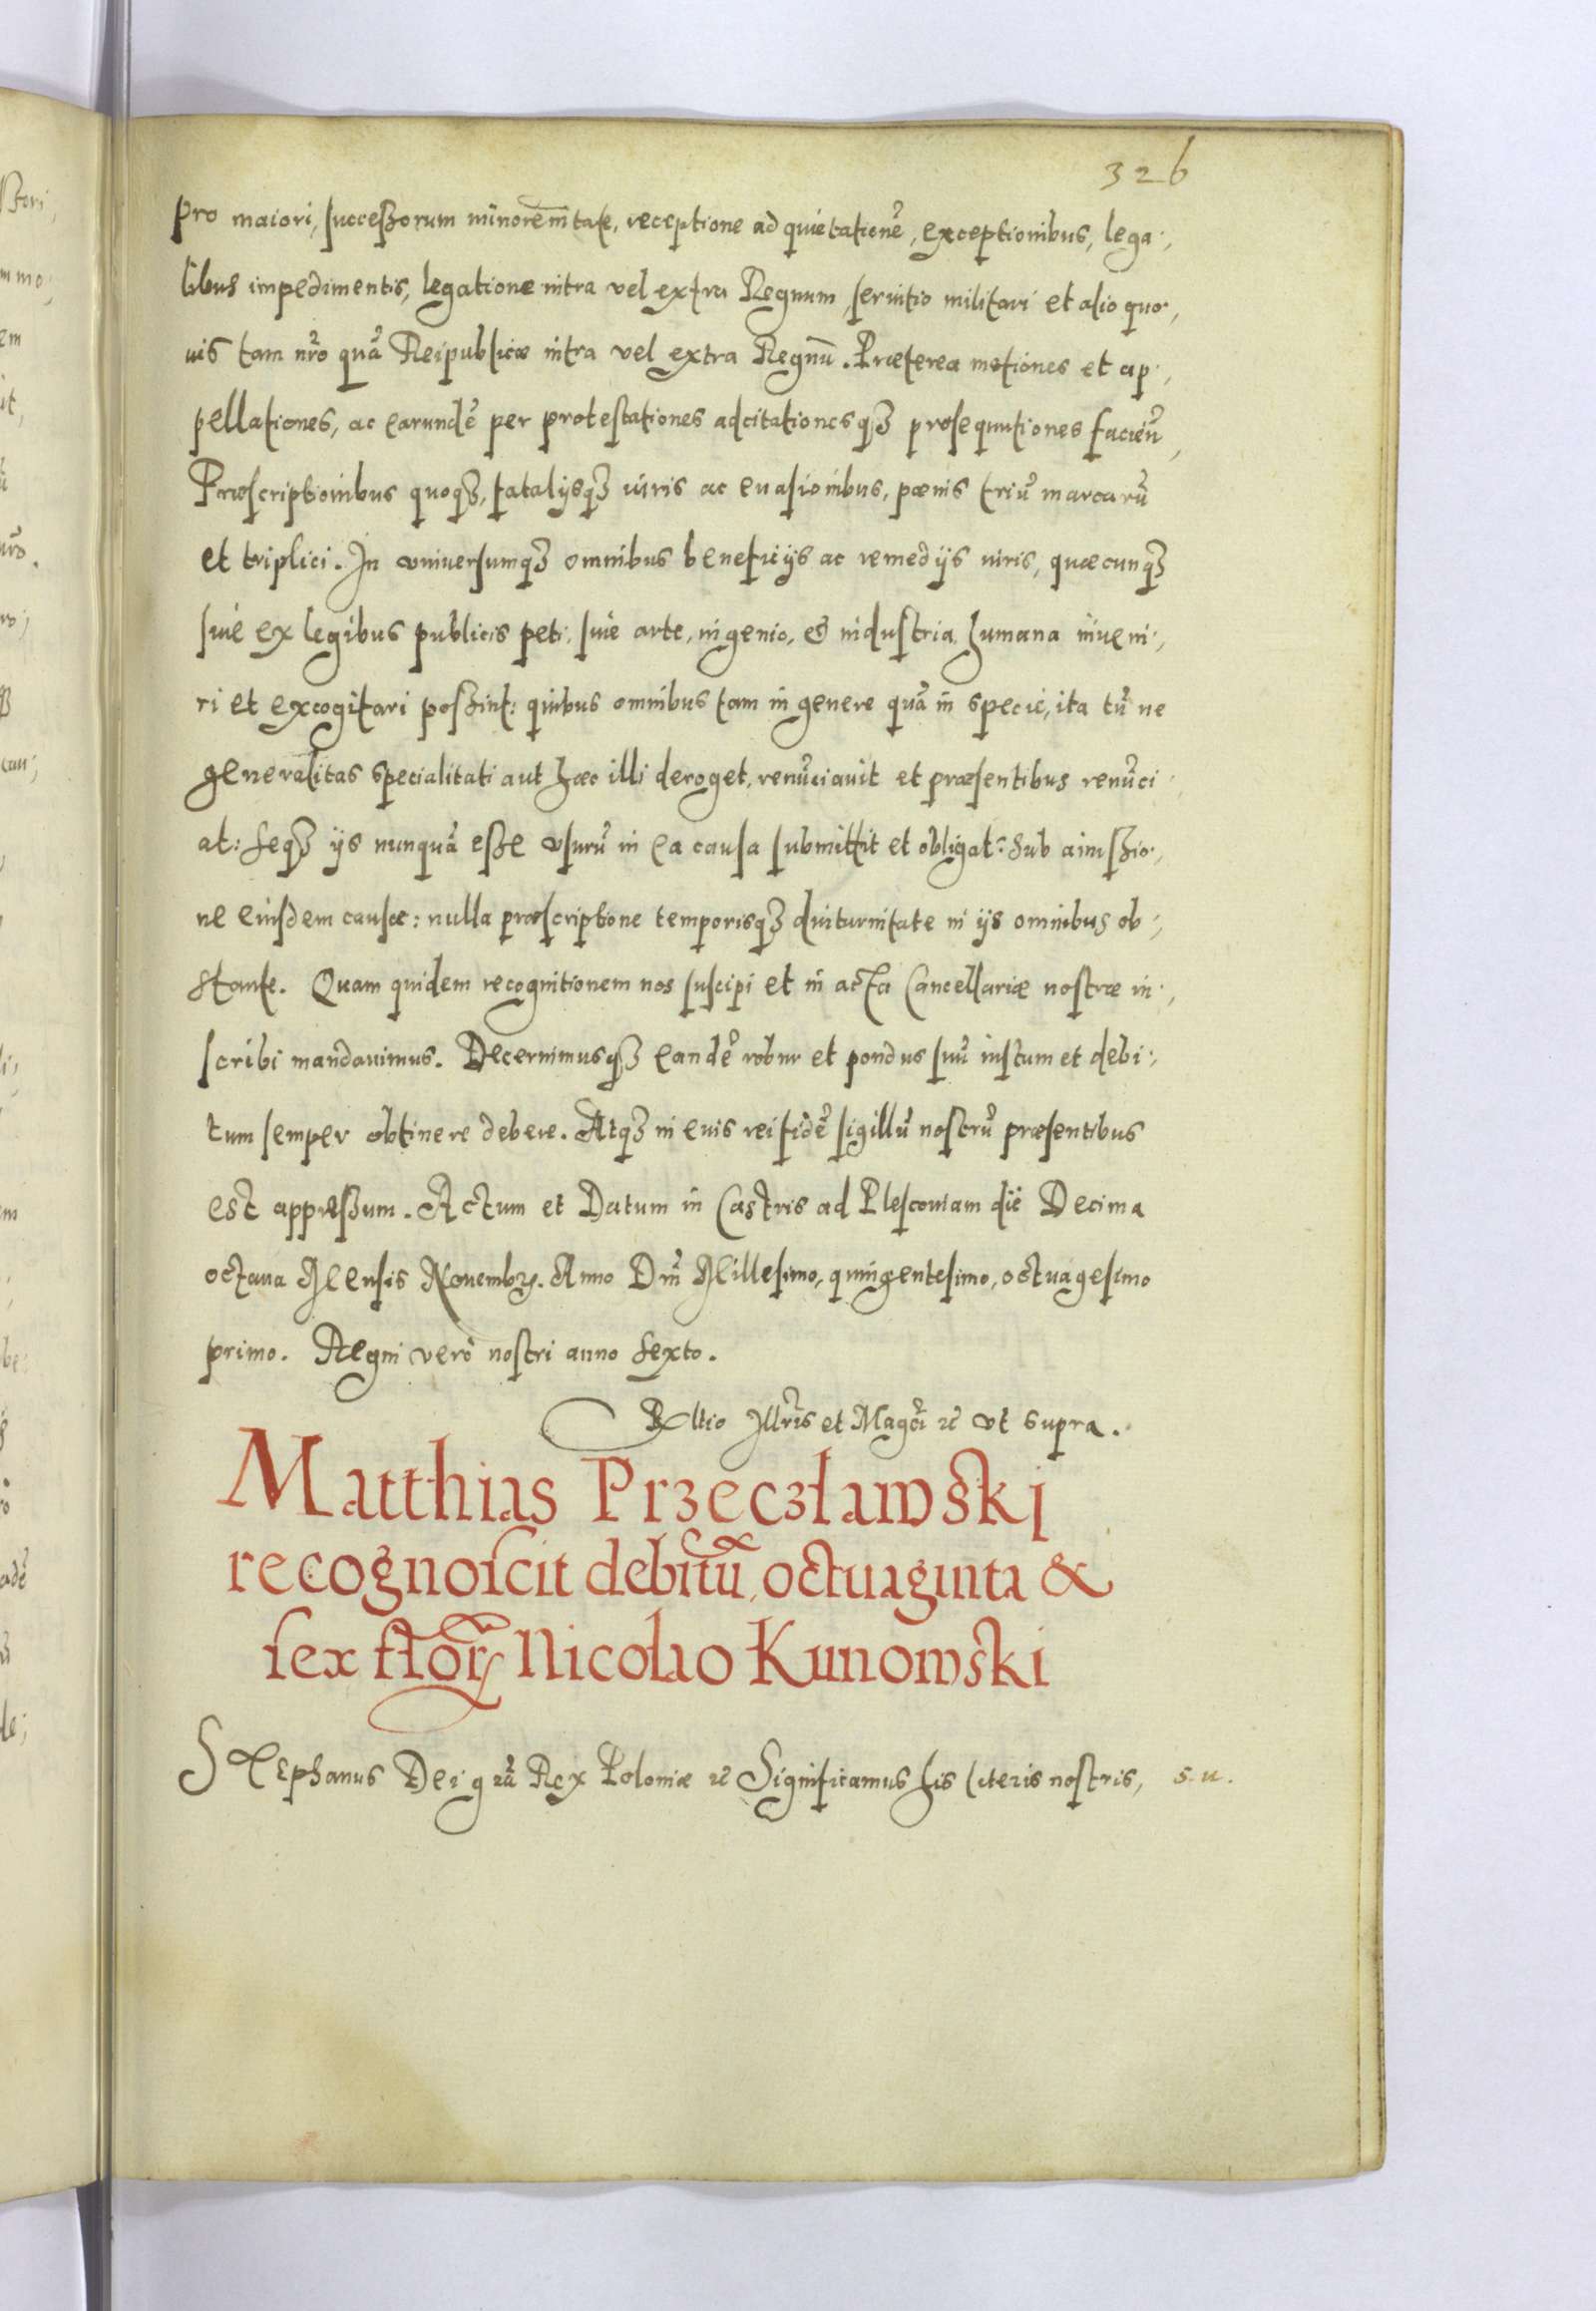 326
pro maiori, successorum minorennitate, receptione ad quietationẽ, exceptionibus, lega
libus impedimentis, legatione intra vel extra Regnum, seruitio militari et alio quo
uis tam nr̃o quã Reipublicæ intra vel extra Regnũ. Præterea motiones et ap
pellationes, ac earundẽ per protestationes adcitationesqꝫ prosequutiones facieñ,
Præscriptionibus quoqꝫ, fatalijsqꝫ iuris ac euasionibus, pænis triũ marcarũ
et triplici. In vniuersumqꝫ omnibus beneficijs ac remedijs iuris, quæcunqꝫ
siue ex legibus publicis peti, siue arte, ingenio, & industria humana inueni
ri et excogitari possint: quibus omnibus tam in genere quã in specie, ita tñ ne
generalitas specialitati aut hæc illi deroget, renũciauit et præsentibus renũci
at: seqꝫ ijs nunquã esse vsurũ in ea causa submittit et obligat: sub amissio
ne eiusdem causæ: nulla præscriptione temporisqꝫ diuturnitate in ijs omnibus ob
stante. Quam quidem recognitionem nos suscipi et in acta Cancellariæ nostræ in
scribi mandauimus. Decernimusqꝫ eandẽ robur et pondus suũ iustum et debi
tum semper obtinere debere. Atqꝫ in euis rei fidẽ sigillũ nostrũ præsentibus
est appressum. Actum et Datum in Castris ad Plescouiam die Decima
octaua Mensis Nouembꝝ. Anno Dm̃ Millesimo, quingentesimo, octuagesimo
primo. Regni verò nostri anno sexto.
Rltio Illr̃is et Magci ꝛc̃ vt supra.
Matthias Przeczławski
recognoscit debitũ octuaginta &
sex florꝝ Nicolao Kunowski
Stephanus Dei grã Rex Poloniæ ꝛc̃ Significamus his literis nostris, s. u.